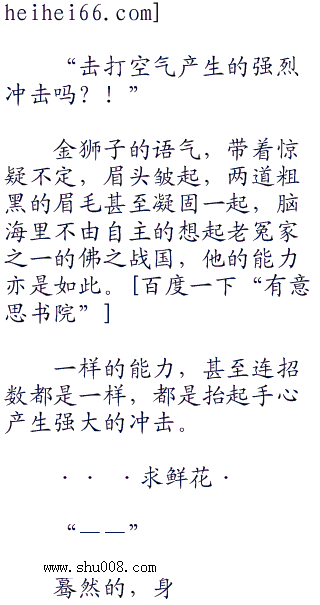 heihei66.com]
“击打空气产生的强烈
冲击吗？！”
金狮子的语气，带着惊
疑不定，眉头皱起，两道粗
黑的眉毛甚至凝固一起，脑
海里不由自主的想起老冤家
之一的佛之战国，他的能力
亦是如此。[百度一下“有意
思书院”]
一样的能力，甚至连招
数都是一样，都是抬起手心
产生强大的冲击。
· · ·求鲜花·
“——”
www.shu008.com
蓦然的，身